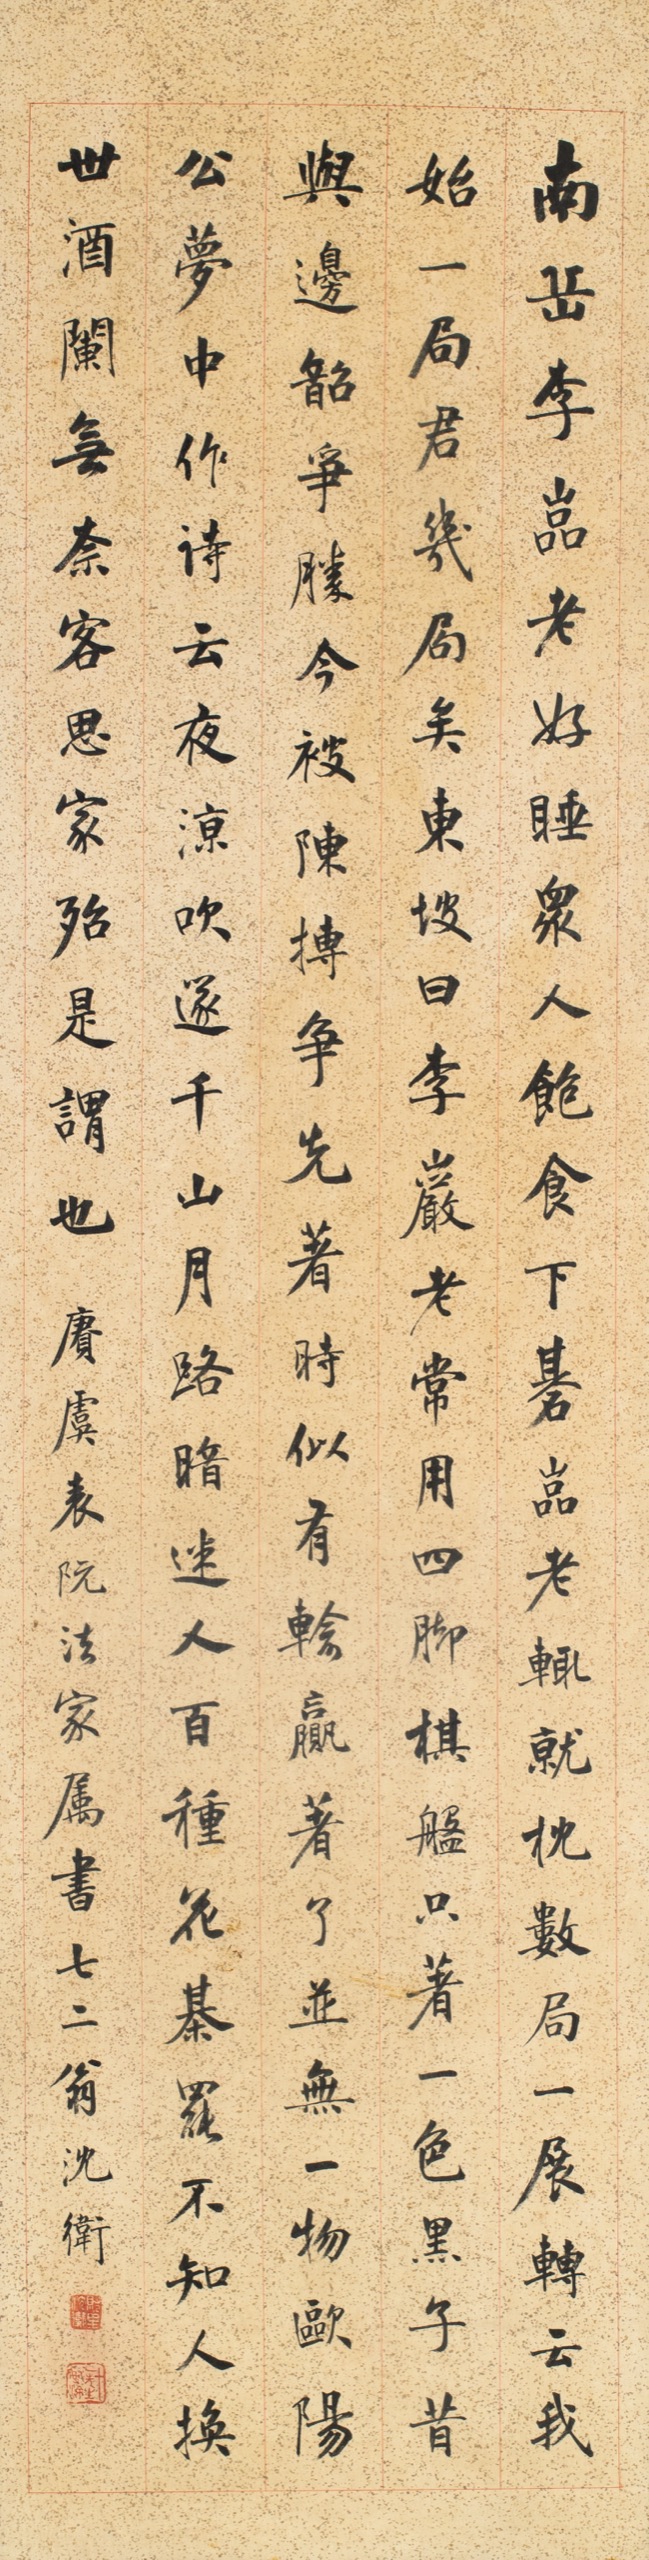 南岳李嵒老好睡眾人飽食下碁嵒老輒就枕數局一展轉云我
始一局君幾局矣東坡曰李巖老常用四脚棋盤只著一色黑子昔
與邊韶爭勝今被陳摶争先著時似有輸贏著了並無一物歐陽
公夢中作詩云夜涼吹遂千山月路暗迷人百種花棊罷不知人換
世酒闌無奈客思家殆是謂也 賡虞表阮法家属書七二翁沈衛